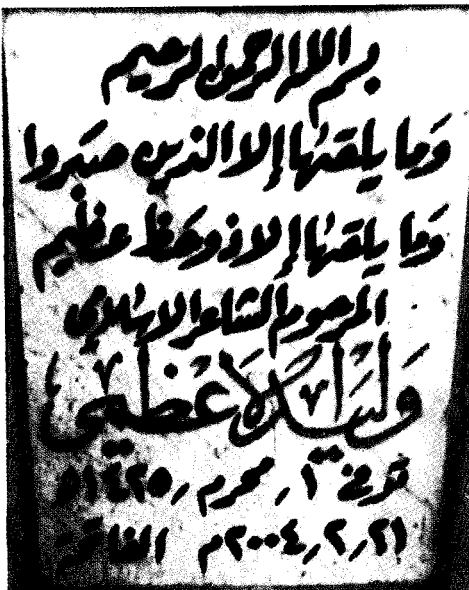 بسم الله الرحمن الرحيم
وَما يلقىٰها إلا الذين صبَروا
وَما يلقىٰها إلا ذو حَظ عظيم
المرحوم الشاعر الاسلامي
وليد الاعظمي
توفي ١ محرم ١٤٢٥ه
٢١/٢/٢٠٠٤م الفاتحة